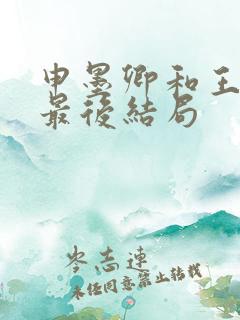 申墨卿和王
最後結局
岑志連
未经同意禁止转载